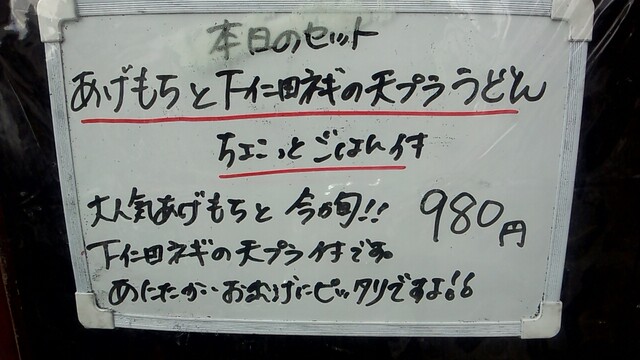 本日のセット
あげもちと下仁田ネギの天プラうどん
ちょこっとごはん付
大人気あげもちと 今が旬!! 980円
下仁田ネギの天プラ付です。
おむげにピッタリですよ!!